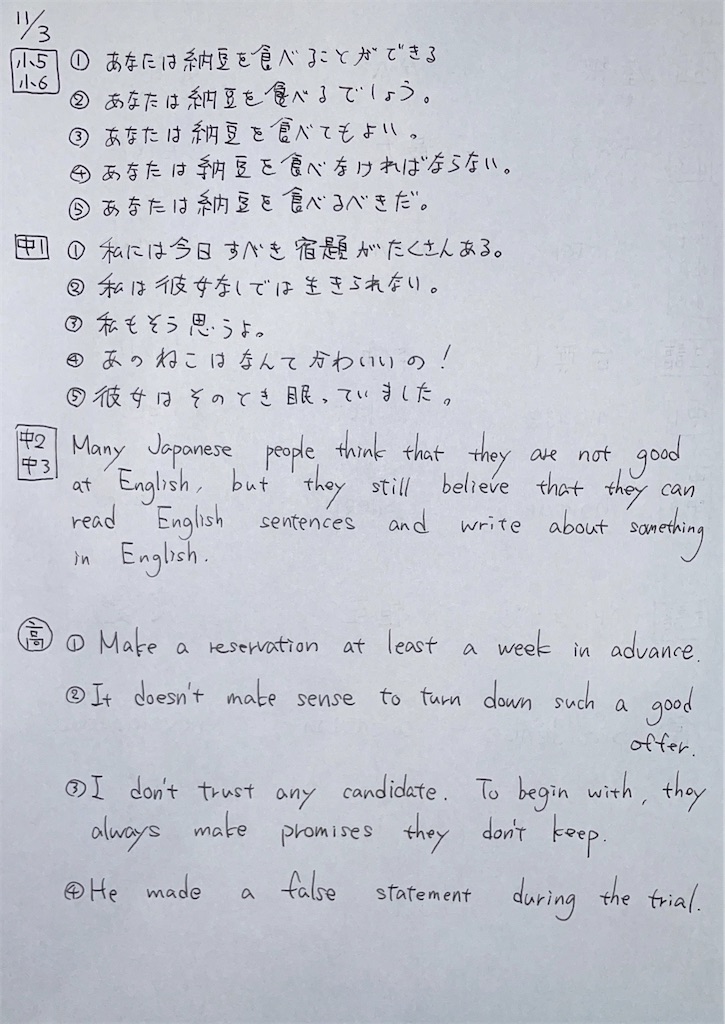 11/3
小5
小6
① あなたは納豆を食べることができる
② あなたは納豆を食べるでしょう。
③ あなたは納豆を食べてもよい。
④ あなたは納豆を食べなければならない。
⑤ あなたは納豆を食べるべきだ。
中1 ① 私には今日すべき宿題がたくさんある。
② 私は彼女なしでは生きられない。
③ 私もそう思うよ。
④ あのねこはなんてかわいいの!
⑤ 彼女はそのとき眠っていました。
中2
中3
Many Japanese people think that they are not good
at English, but they still believe that they can
read English sentences and write about something
in English.
高 ① Make a reservation at least a week in advance.
② It doesn't make sense to turn down such a good
offer.
③ I don't trust any candidate. To begin with, they
always make promises they don't keep.
④ He made a false statement during the trial.